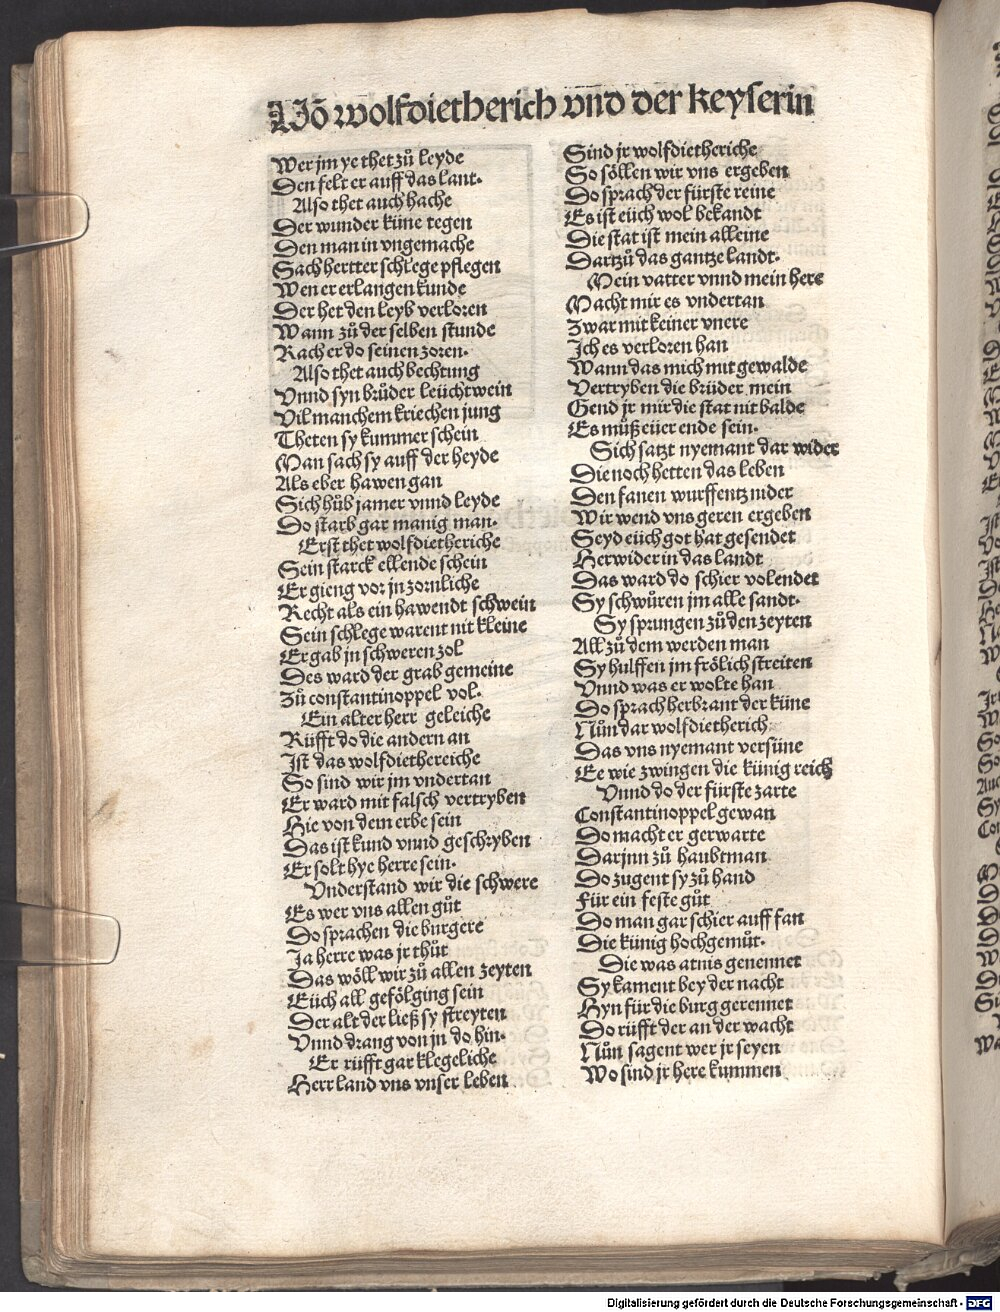 Uõ wolfdietherich vnd der keyserin
Wer jm ye thet zů leyde
Den felt er auff das lant.
Also thet auch hache
Der wunder küne tegen
Den man in vngemache
Sach hertter schlege pflegen
Wen er erlangen kunde
Der het den leyb verloren
Wann zů der selben stunde
Rach er do seinen zoren.
Also thet auch bechtung
Vnnd syn brůder leüchtwein
Vil manchem kriechen jung
Theten sy kummer schein
Man sach sy auff der heyde
Als eber hawen gan
Sich hůb jamer vnnd leyde
Do starb gar manig man.
Erst thet wolfdietheriche
Sein starck ellende schein
Er gieng vor jn zornliche
Recht als ein hawendt schwein
Sein schlege warent nit kleine
Er gab jn schweren zol
Des ward der grab gemeine
Zů constantinoppel vol.
Ein alter herr geleiche
Růfft do die andern an
Ist das wolfdiethereiche
So sind wir jm vndertan
Er ward mit falsch vertryben
Hie von dem erbe sein
Das ist kund vnnd geschryben
Er solt hye herre sein.
Vnderstand wir die schwere
Es wer vns allen gůt
Do sprachen die burgere
Ja herre was jr thůt
Das wöll wir zů allen zeyten
Eüch all gefölging sein
Der alt der ließ sy streyten
Vnnd drang von jn do hin.
Er růfft gar klegeliche
Herr land vns vnser leben
Sind jr wolfdietheriche
So söllen wir vns ergeben
Do sprach der fürste reine
Es ist eüch wol bekandt
Die stat ist mein alleine
Dartzů das gantze landt.
Mein vatter vnnd mein here
Macht mir es vndertan
Zwar mit keiner vnere
Ich es verloren han
Wann das mich mit gewalde
Vertryben die brüder mein
Gend jr mir die stat nit balde
Es můß eüer ende sein.
Sich satzt nyemant dar wider
Die noch hetten das leben
Den fanen wurffentz nider
Wir wend vns geren ergeben
Seyd eüch got hat gesendet
Herwider in das landt
Das ward do schier volendet
Sy schwůren jm alle sandt.
Sy sprungen zů den zeyten
All zů dem werden man
Sy hulffen jm frölich streiten
Vnnd was er wolte han
Do sprach herbrant der küne
Nůn dar wolfdietherich
Das vns nyemant versüne
Ee wie zwingen die künig reich
Vnnd do der fürste zarte
Constantinoppel gewan
Do macht er gerwarte
Darjnn zů haubtman
Do zugent sy zů hand
Für ein feste gůt
Do man gar schier auff fan
Die künig hochgemůt.
Die was atnis genennet
Sy kament bey der nacht
Hyn für die burg gerennet
Do růfft der an der wacht
Nůn sagent wer jr seyen
Wo sind jr here kummen
Digitalisierung gefördert durch die Deutsche Forschungsgemeinschaft - DFG